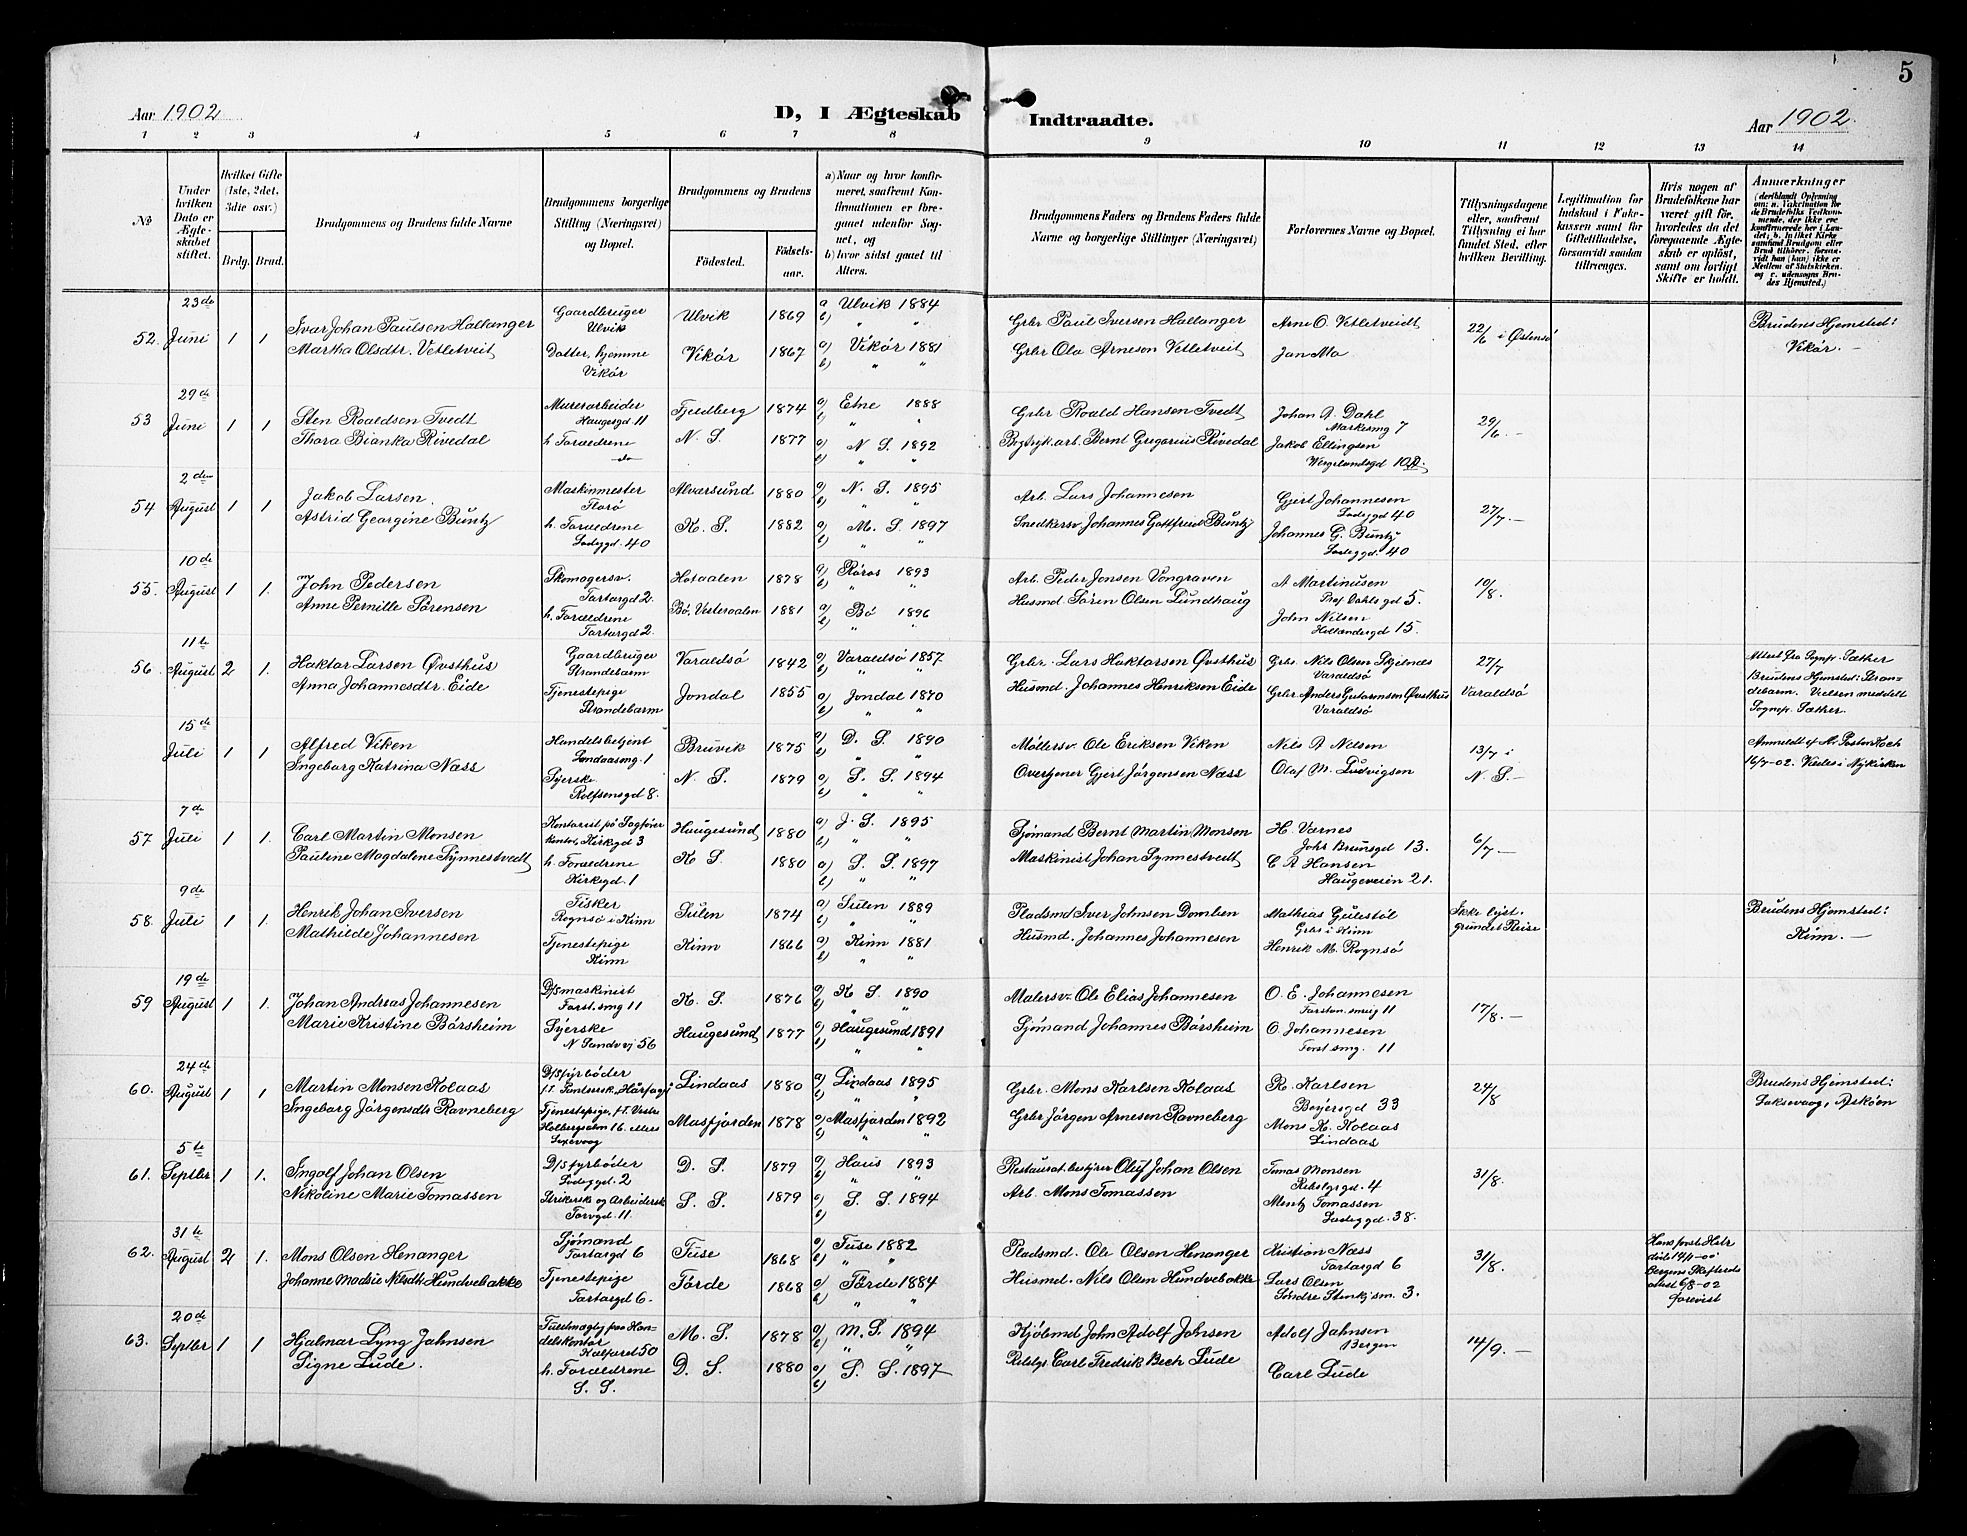 5
Aar 1902
D, I Ægteskab Indtraadte.
Aar 1902.
1 2 3 4 5 6 7 8 9 10 11 12 13 14
№
Under hvilken Dato er Ægteskabet stiftet.
Hvilket Gifte (1ste, 2det, 3die osv.)
Brdg. Brud.
Brudgommens og Brudens fulde Navne
Brudgommens borgerlige Stilling (Næringsvei) og Bopæl.
Brudgommens og Brudens
Fødested. Fødselsaar.
a) Naar og hvor konfirmeret, saafremt Konfirmationen er foregaaet udenfor Sognet, og
b) hvor sidst gaaet til Alters.
Brudgommens Faders og Brudens Faders fulde Navne og borgerlige Stillinger (Næringsvei)
Forlovernes Navne og Bopæl.
Tillysningsdagene eller, saafremt Tillysning ei har fundet Sted, efter hvilken Bevilling.
Legitimation for Indskud i Enkekassen samt for Giftetilladelse, forsaavidt saadan tiltrænges.
Hvis nogen af Brudefolkene har været gift før, hvorledes da det foregaaende Ægteskab er opløst, samt om lovligt Skifte er holdt.
Anmærkninger
52. 23de Juni 1 1
Ivar Johan Paulsen Hallanger Gaardbruger Ulvik Ulvik 1869 a) Ulvik 1884 b) " " Grbr Paul Iversen Hallanger Arne O. Vetletveidt 22/6 i Østensø Brudens Hjemsted: Vikør. —
Martha Olsdtr. Vetletveit Datter, hjemme Vikør Vikør 1867 a) Vikør 1881 b) " " Grbr Ola Arneson Vetletveit Jan Mo
53 29de Juni 1 1
Sten Roaldsen Tvedt Murerarbeider Haugesgd 11 Fjeldberg 1874 a) Etne 1888 b) " " Grbr Roald Hansen Tvedt Johan A. Dahl Markesmg 7 29/6. —
Thora Bianka Rivedal h. Forældrene do N. S. 1877 a) N S. 1892 b) " " Bernt Gregorius Rivedal Jakob Ellingsen Wergelandsgd
54 2den August 1 1
Jakob Larsen. Maskinmester Alversund 1880 a) N. S. 1895 b) " " Arb. Lars Johannesen Gjert Johannesen Ladeggd 40 27/7. —
Astrid Georgine Buntz h. Forældrene Ladeggd. 40 K. S. 1882 a) M. S. 1897 b) " " Snedkersv. Johannes Gottfried Buntz Johannes G. Buntz Ladeggd. 40
55. 10de August 1 1
John Pedersen Skomagersv. Tartargd 2. 1878 a) Røros 1893 b) " " Arb. Peder Jonsen Vongraven A Martinusen Prof Dahls gd 5. 10/8.
Anne Pernille Sørensen h. Forældrene Tartargd 2. Bø, Vesteraalen 1881 a) Bø 1896 b) " " Husmd Søren Olsen Lundhaug John Nilsen Hollendergd 15.
56. 11te August 2 1.
Haktor Larsen Øvsthus Gaardbruger Strandebarm Varaldsø 1842 a) Varaldsø 1857 b) " " Grbr. Lars Haktorsen Øvsthus Grbr. Nils Olsen Skjelnæs Varaldsø 27/7 Varaldsø Attest fra Sognep. Sæther
Anna Johannesdtr. Eide Tjenestepige Strandebarm Jondal 1855 a) Jondal 1870 b) " " Husmd. Johannes Henriksen Eide Grbr Anders Øvsthus Varaldsø Brudens Hjemsted: Strandebarm. Vielsen meddelt Sognepr. Sæther.
15de Juli 1 1
Alfred Viken Handelsbetjent Landaasmg. 1 Bruvik 1875 a) D. S. 1890 b) " " Møllersv. Ole Eriksen Viken Nils A Nilsen 13/7 i N. S. — Anmeldt af Hr. Pastor Koch 16/7-02. Viedes i Nykirken
Ingeborg Katrina Næss Syerske Rolfsensgd 8. N. S. 1879 a) S. S. 1894 b) " " Overtjener Gjert Jørgensen Næss Olaf M. Ludvigsen
57 7de Juli 1 1.
Carl Martin Monsen Kontorist på Sagførerkontor, Kirkegd 3 Haugesund 1880 a) J. S. 1895 b) " " Sjømand Bernt Martin Monsen H. Varnes Johs Brunsgd 13. 6/7 —
Pauline Magdalene Synnestvedt h. Forældrene Kirkegd. 1 K S. 1880 a) S. S. 1897 b) " " Maskinist Johan Synnestvedt C A Hansen Haugeveien 21.
58. 9de Juli 1 1.
Henrik Johan Iversen Fisker Rognsø i Kinn Sulen 1874 a) Sulen 1889 b) " " Pladsmd Iver Johnsen Domben Mathias Gulestøl Grbr i Kinn Ikke lyst. grundet Reise Brudens Hjemsted: Kinn. —
Mathilde Johannesen Tjenestepige Kinn Kinn 1866 a) Kinn 1881 b) " " Husmd. Johannes Johannesen Henrik M. Rognsø
59 19de August 1 1.
Johan Andreas Johannesen D/Smaskinist Forst.smg 11 K. S. 1876 a) K S. 1890 b) " " Malersv. Ole Elias Johannesen O. E. Johannesen 11 17/8. —
Marie Kristine Børsheim Syerske N Sandvvj 56 Haugesund 1877 a) Haugesund 1891 b) " " Sjømand Johannes Børsheim O. Johannesen Forst smg. 11
60. 24de August 1 1
Martin Monsen Kolaas D/Sfyrbøder Lindaas 1880 a) Lindaas 1895 b) " " Grbr. Mons Karlsen Kolaas K. Karlsen Beyersgd 33 24/8 Brudens Hjemsted: Laksevaag, Askøen
Ingeborg Jørgensdtr Ravneberg Tjenestepige, Masfjorden 1878 a) Masfjorden 1892 b) " " Grbr Jørgen Arnesen Ravneberg Mons K. Kolaas Lindaas
61. 5te Septbr 1 1.
Ingolf Johan Olsen D/Sfyrbøder Ladeggd. 2 D. S. 1879 a) Haus 1893 b) " " Restaurat. bestyrer Oluf Johan Olsen Tomas Monsen 4 31/8.
Nikoline Marie Tomassen Strikersk og Arbeidersk Torvgd. 11 S. S. 1879 a) S. S. 1894 b) Arb. Mons Tomassen Mentz Tomassen Ladeggd. 38.
62. 31te August 2 1.
Mons Olsen Henanger Sjømand Tartargd 6 Fuse 1868 a) Fuse 1882 b) " " Pladsmd. Ole Olsen Henanger Kristian Næss Tartargd 6 31/8. Hans første Hstr døde Bergens Skifterets attest 6/8-02 forevist
Johanne Madsie Nilsdtr Hundvebakke Tjenestepige Tartargd 6. Førde 1868 a) Førde 1884 b) " " Husmd. Nils Olsen Hundvebakke Lars Olsen Søndre Stenkjsm. 3.
63. 20de Septbr 1 1
Hjalmar Lyng Jahnsen Kalfaret 50 M. S. 1878 a) M. S. 1894 b) " " Kjølemd John Adolf Johnsen Adolf Jahnsen Bergen 14/9. —
Signe Lude. h. Forældrene S. S. D. S. 1880 a) S. S. 1897 b) Carl Fredrik Bech Lude Carl Lude